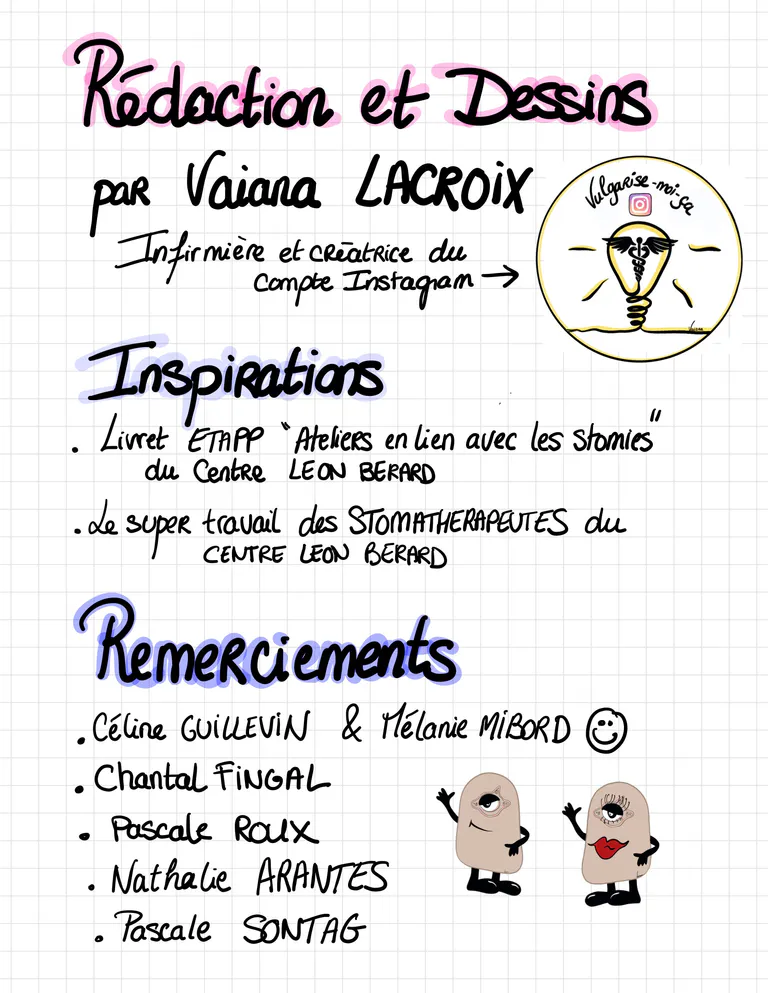 Rédaction et Dessins
par Vaiana LACROIX
Vulgarise-moi-ça
Infirmière et créatrice du
compte Instagram →
Inspirations
. Livret ETAPP "Ateliers en lien avec les stomies"
du Centre LEON BERARD
. Le super travail des STOMATHERAPEUTES du
CENTRE LEON BERARD
Remerciements
. Céline GUILLEVIN & Mélanie MIBORD ☺
. Chantal FINGAL
. Pascale ROUX
. Nathalie ARANTES
. Pascale SONTAG